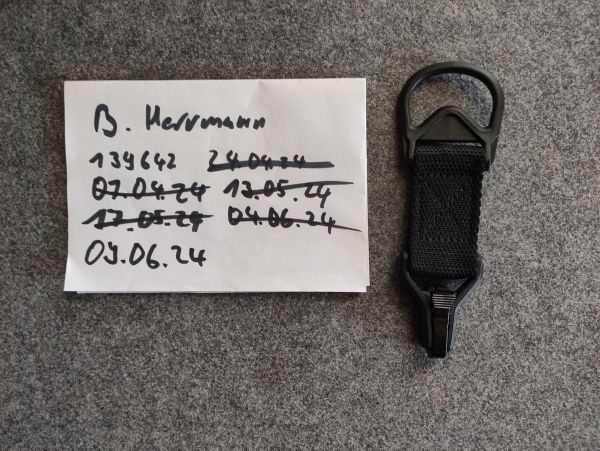 B. Herrmann
139642 24.04.24
07.04.24 13.05.24
17.05.24 04.06.24
09.06.24